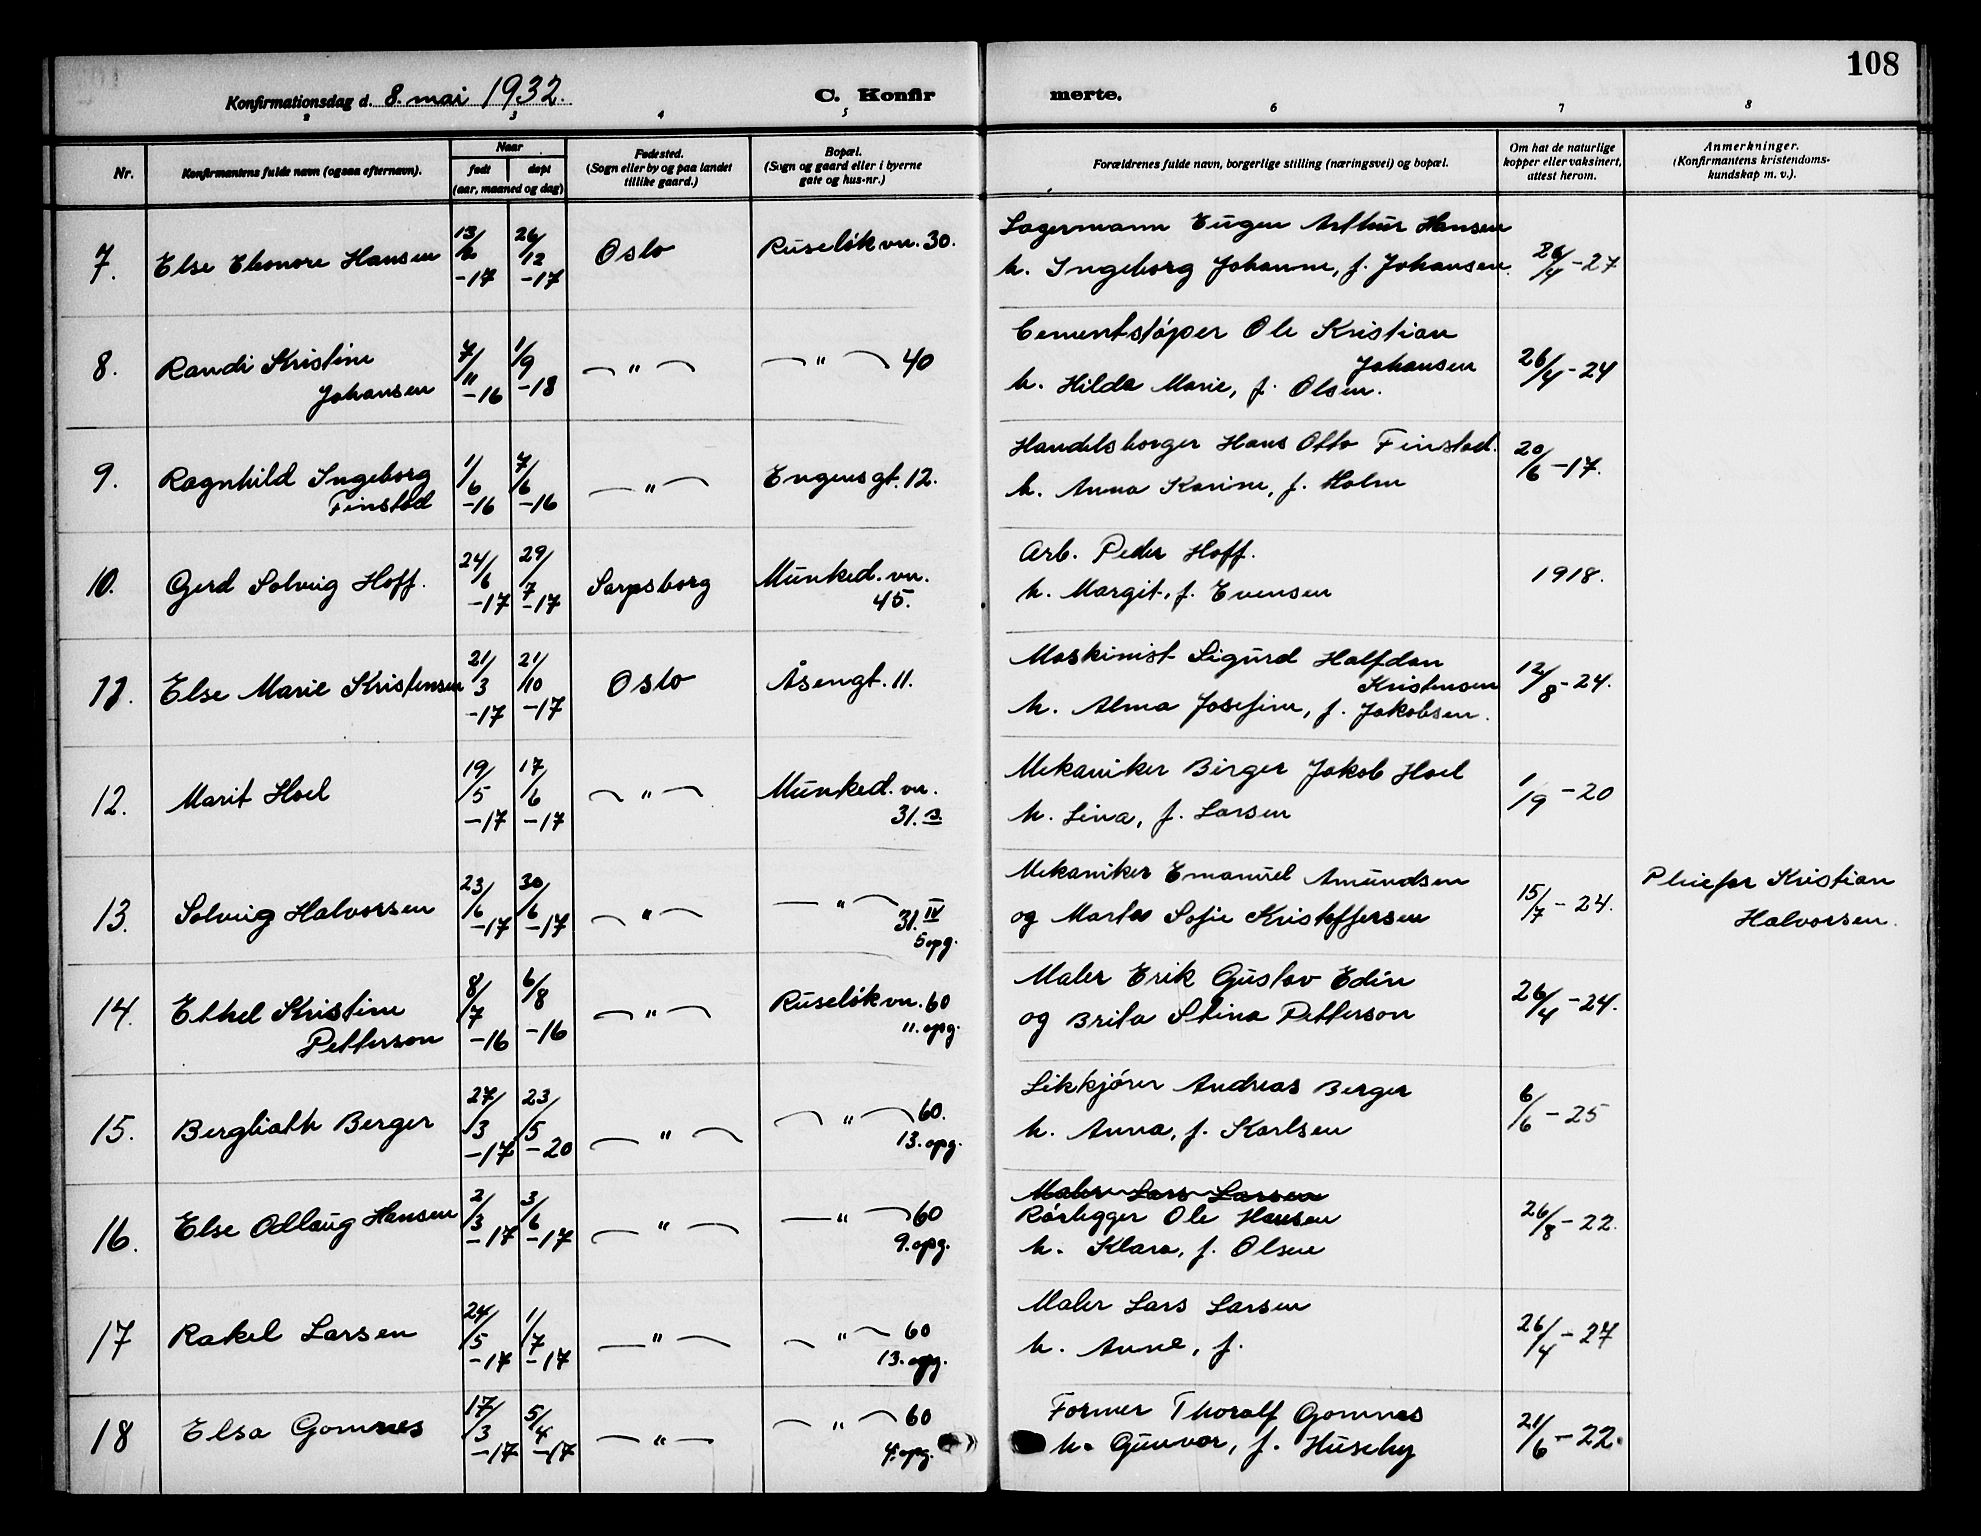 108
Konfirmationsdag d. 8. mai 1932. C. Konfirmerte.
2 3 4 5 6 7 8
Nr. Konfirmantens fulde navn (ogsaa efternavn). Naar Fødested. Bopæl. Forældrenes fulde navn, borgerlige stilling (næringsvei) og bopæl. Om hat de naturlige Anmerkninger.
født døpt (Sogn eller by og paa landet (Sogn og gaard eller i byerne kopper eller vaksinert, (Konfirmantens kristendoms-
(aar, maaned og dag) tillike gaard.) gate og hus-nr.) attest herom. kundskap m. v.).
7. Else Elenore Hansen 13/2 -17 26/12 -17 Oslo Ruseløkvn. 30. Lagermann Eugen Arthur Hansen 26/4 -27
h. Ingeborg Johanne, f. Johansen.
8. Randi Kristine 7/11 -16 1/9 -18 — " — — " — 40 Cementstøper Ole Kristian 26/4 -24
Johansen Johansen
h. Hilda Marie, f. Olsen.
9. Ragnhild Ingeborg 1/6 -16 7/6 -16 — " — Engensgt. 12. Handelsborger Hans Otto Finstad. 20/6 -17.
Finstad h. Anna Karine, f. Holm
10. Gerd Solveig Hoff. 24/6 -17 29/7 -17 Sarpsborg Munked. vn. Arb. Peder Hoff. 1918.
45. h. Margit, f. Evensen
11. Else Marie Kristensen 21/3 -17 21/10 -17 Oslo Åsengt. 11. Maskinist Sigurd Halfdan 12/8 -24.
Kristensen
h. Alma Josefine, f. Jakobsen.
12. Marit Hoel 19/5 -17 17/6 -17 — " — Munked. vn. Mekaniker Birger Jakob Hoel 1/9 -20
31. h. Lina, f. Larsen
13. Solveig Halvorsen 23/6 -17 30/6 -17 — " — — " — Mekaniker Emanuel Amundsen 15/7 -24. Pleiefar Kristian
31. IV og Marta Sofie Kristoffersen Halvorsen.
5 opg.
14. Ethel Kristine 8/7 -16 6/8 -16 — " — Ruseløkvn. 60 Maler Erik Gustav Edin 26/4 -24.
Petterson 11. opg. og Brita Stina Petterson
15. Bergliath Berger 27/3 -17 23/5 -20 — " — — " — 60. Likkjører Andreas Berger 6/6 -25
13. opg. h. Anna, f. Karlsen
16. Else Odlaug Hansen 2/3 -17 3/6 -17 — " — — " — 60 Maler Lars Larsen 26/8 -22.
Rørlegger Ole Hansen
9. opg. h. Klara, f. Olsen
17 Rakel Larsen 24/5 -17 1/7 -17 — " — — " — 60 Maler Lars Larsen 26/4 -27
13. opg. h. Anne, f.
18 Elsa Gomnes 17/3 -17 5/4 -17 — " — — " — 60 Former Thoralf Gomnes 21/6 -22.
4. opg. h. Gunvor, f. Huseby